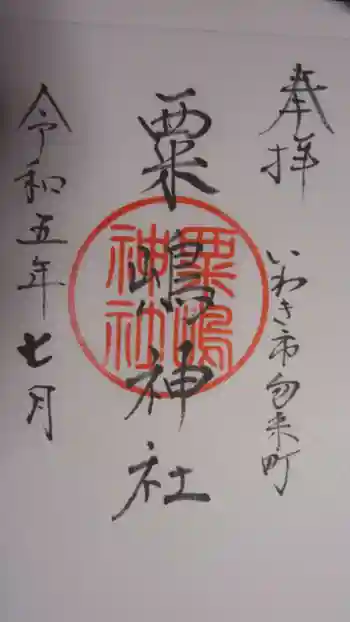 奉拝
いわき市勿来町
粟嶋神社
粟嶋
神社
令和五年七月